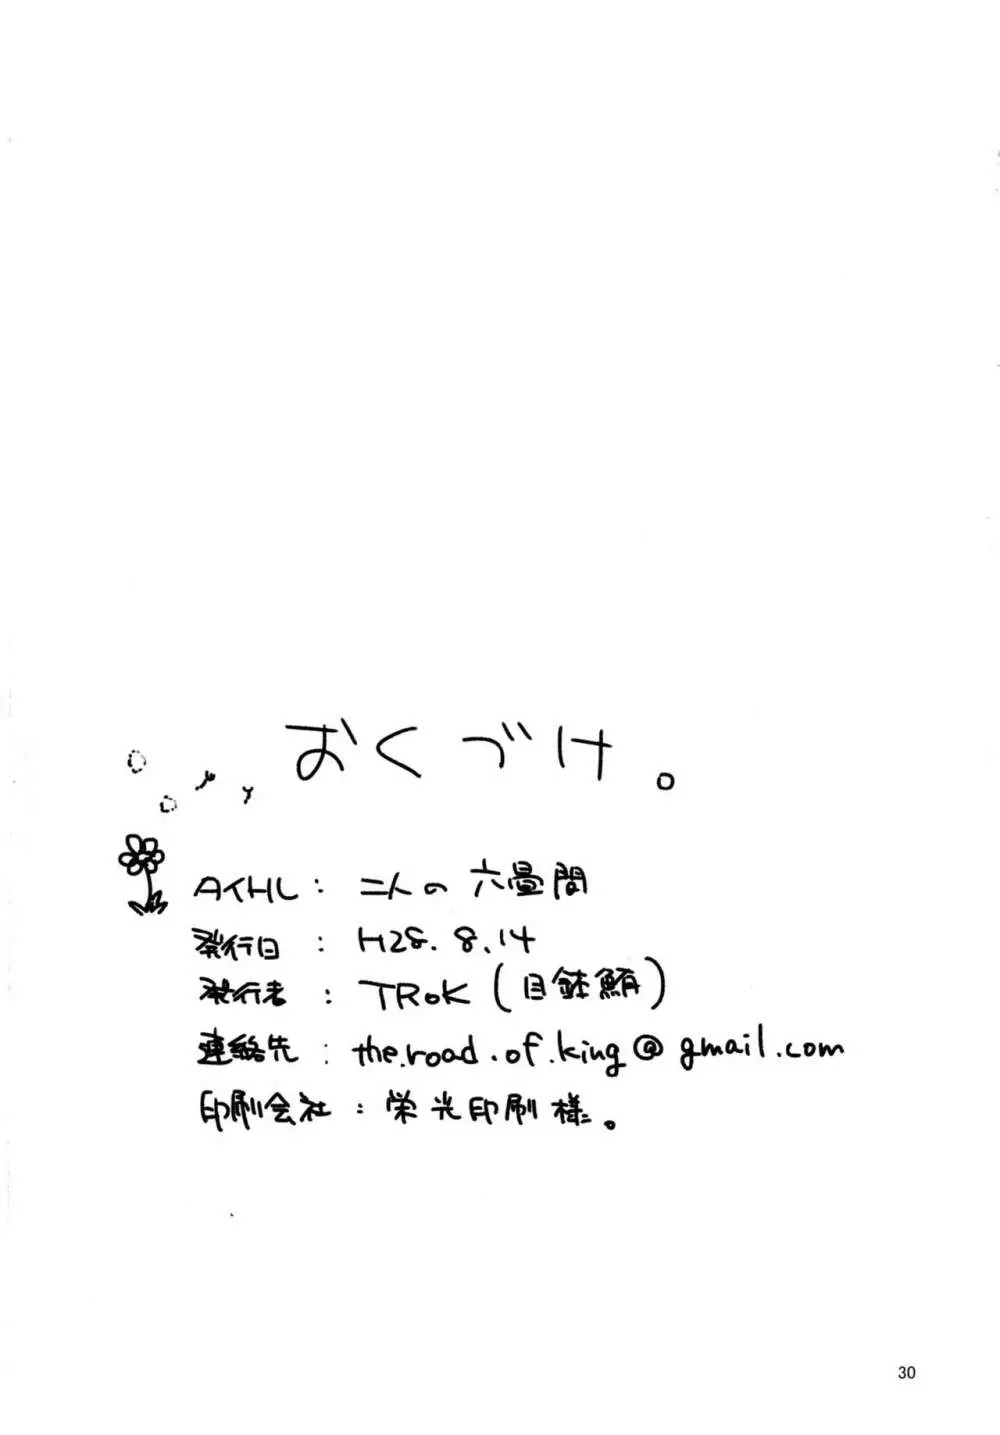 おくづけ。
タイトル : 二人の六畳間
発行日 : H28.8.14
発行者 : TRoK(目鉢鮪)
連絡先 : the.road.of.king@gmail.com
印刷会社 : 栄光印刷様。
30